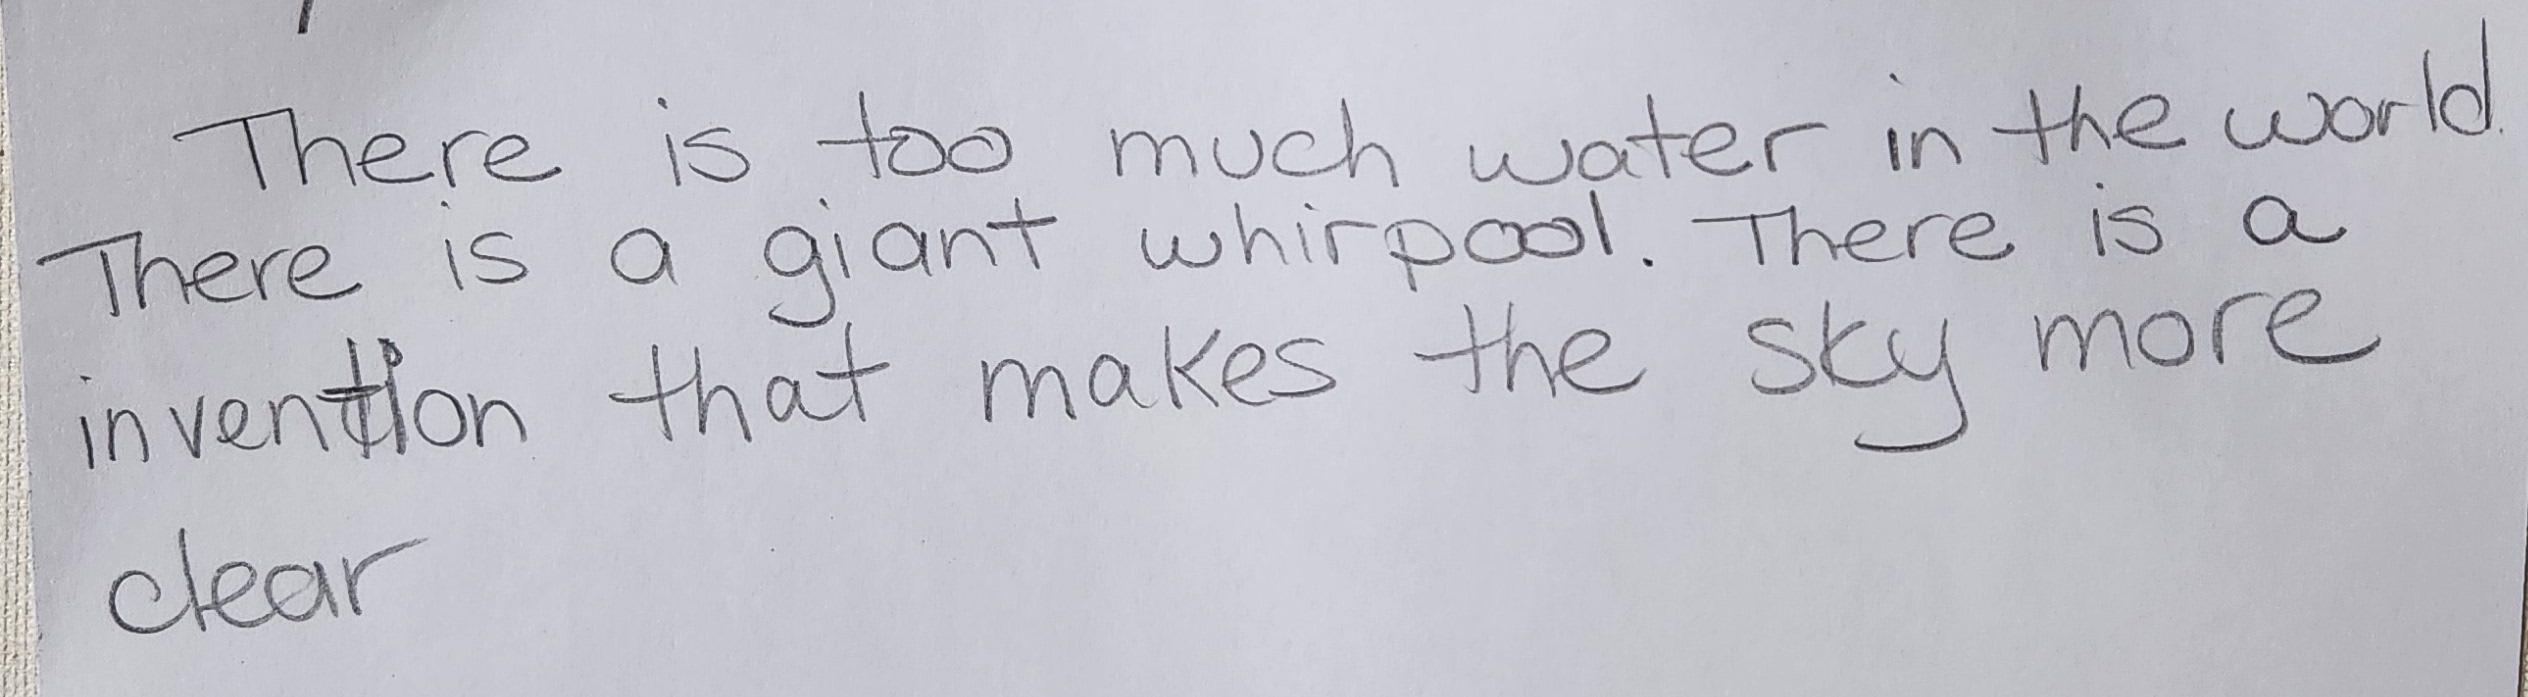 There is too much water in the world.
There is a giant whirpool. There is a
invention that makes the sky more
clear